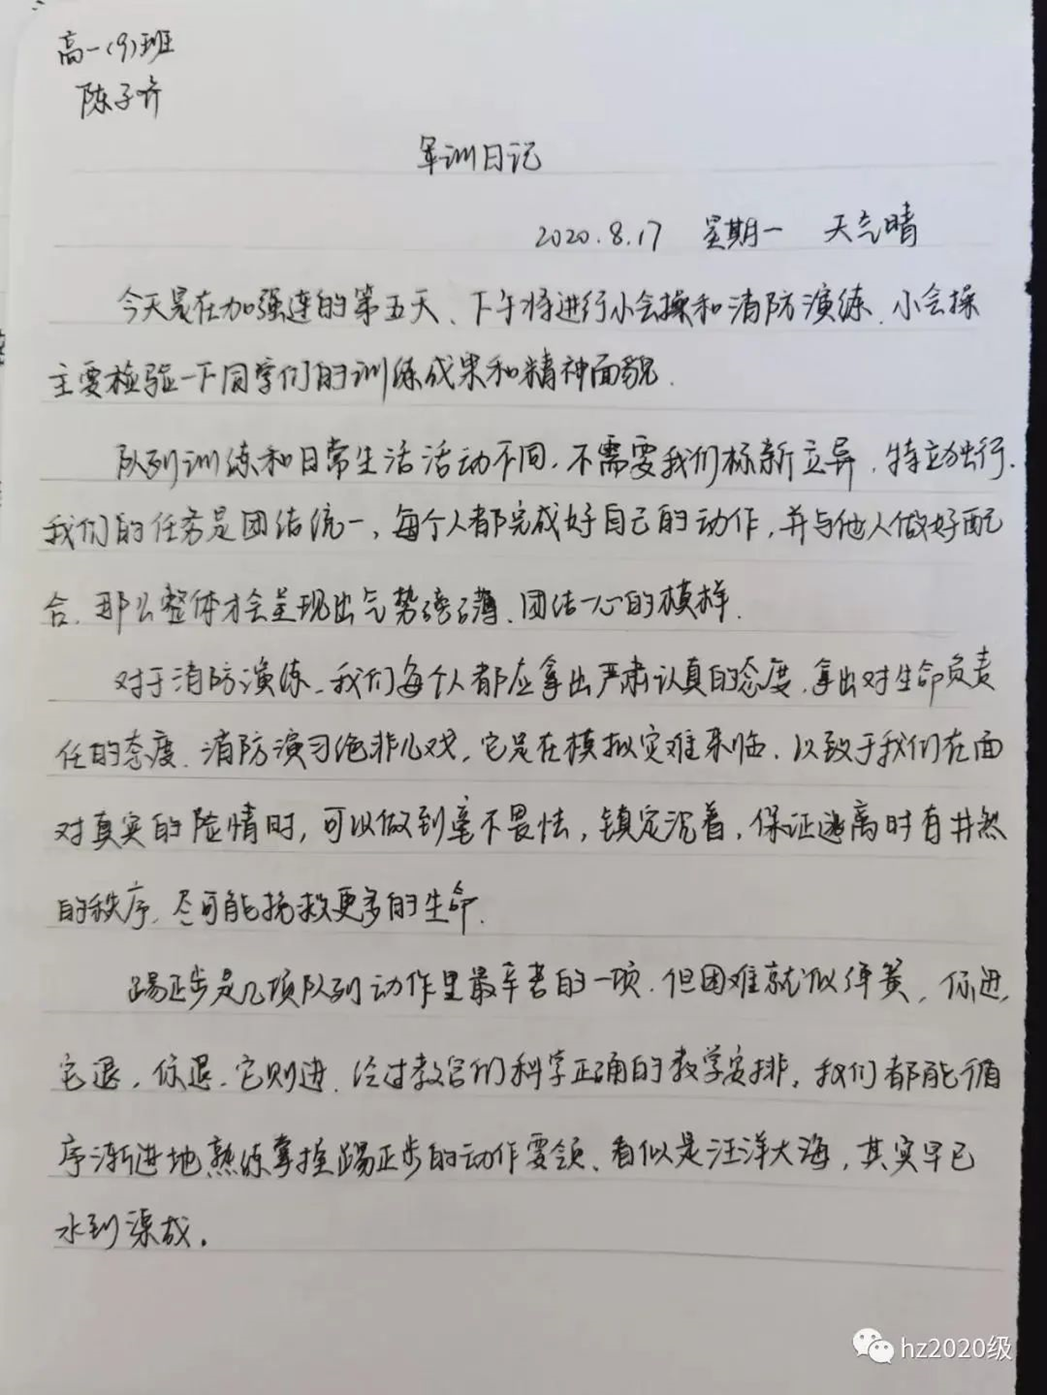 高一(9)班
陈子齐
军训日记
2020.8.17 星期一 天气晴
今天是在加强连的第五天、下午将进行小会操和消防演练.小会操
主要检验一下同学们的训练成果和精神面貌.
队列训练和日常生活活动不同,不需要我们标新立异,特立独行.
我们的任务是团结统一,每个人都完成好自己的动作,并与他人做好配
合.那么整体才会呈现出气势磅礴、团结一心的模样.
对于消防演练、我们每个人都应拿出严肃认真的态度,拿出对生命负责
任的态度.消防演习绝非儿戏,它是在模拟灾难来临.以致于我们在面
对真实的险情时,可以做到毫不畏怯,镇定沉着,保证逃离时有井然
的秩序,尽可能抢救更多的生命.
踢正步是几项队列动作里最辛苦的一项.但困难就似弹簧,你进,
它退,你退,它则进.经过教官们科学正确的教学安排,我们都能循
序渐进地熟练掌握踢正步的动作要领、看似是汪洋大海,其实早已
水到渠成.
hz2020级